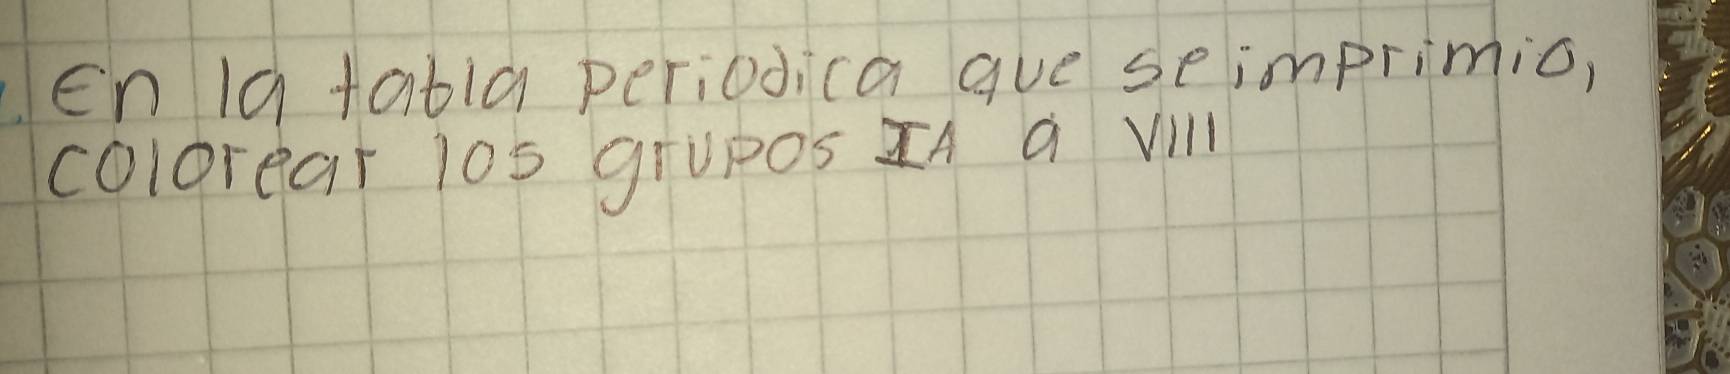 En la tabla periodica que se imprimio,
colorear los grupos IA a VIII